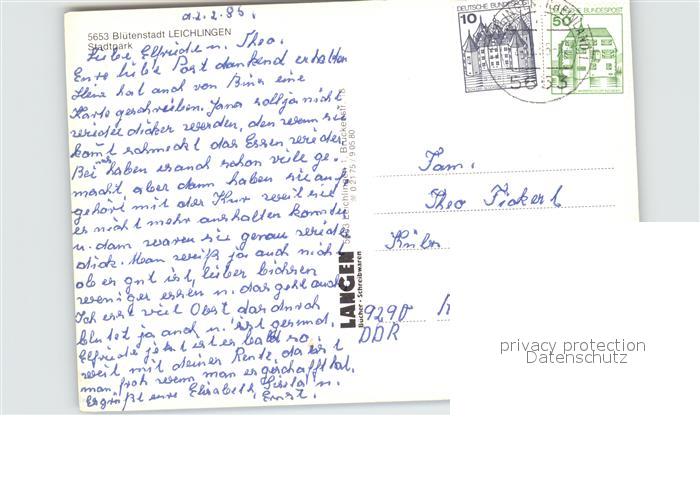 5653 Blütenstadt LEICHLINGEN
Stadtpark
Liebe Elfriede u. Theo.
Eure liebe Post dankend erhalten
hat auch von eine
Karte geschrieben. Jana soll ja nicht
wieder dicker werden, den wenn sie
schmeckt das Essen wieder
Bei haben es auch schon viele ge-
macht aber dann haben sie auf
gehört mit der Kur weil sie
es nicht mehr aushalten konnten
u. dann waren sie genau wieder
dick. Man weiß ja auch nicht
ob es gut ist, lieber bischen
weniger essen u. das geht auch
Ich esst viel Obst das durch
ja auch u. ist gesund.
Elfriede jetzt ist es bald so
weit mit deiner Rente, da ist
man froh wenn man es geschafft hat.
Es grüßt eure Elisabeth Gisela u.
Ernst.
LANGEN
Bücher · Schreibwaren
5653 Leichlingen 1, Brückenstr. 18
☏ 0 21 75 / 9 05 80
10
DEUTSCHE BUNDESPOST
50
DEUTSCHE BUNDESPOST
5653
Fam.
Theo Fickert
9290
DDR
privacy protection
Datenschutz